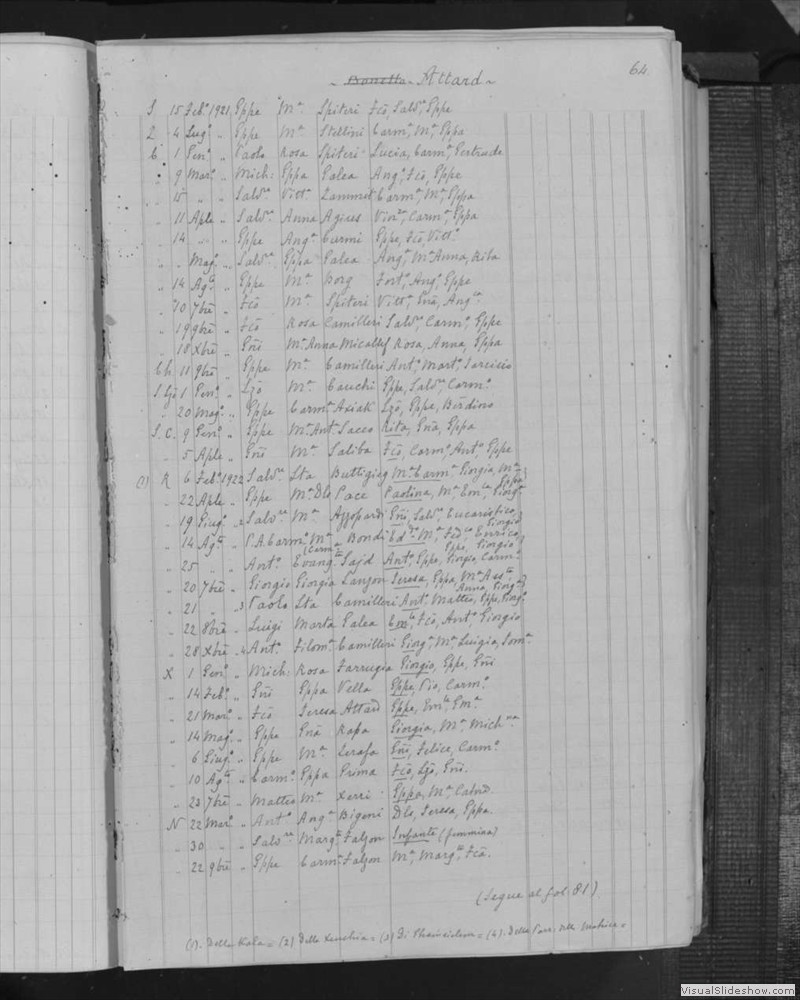 64
Bonello Attard
S 15 Feb.° 1921 Eppe Mª Spiteri Fcō, Salv.r Eppe
2 4 Lug.° " Eppe Mª Stellini Carm.ª, Mª, Eppa
C 1 Gen.° " Paolo Rosa Spiteri Lucia, Carm.ª, Gertrude
" 9 Mar.° " Mich: Eppa Galea Ang.°, Fcō, Eppe
" 15 " " Salv.re Vitt.ª Zammit Carm.ª, Mª, Eppa
" 11 Aple " Salv.re Anna Agius Vin.zo, Carm.ª, Eppa
" 14 " " Eppe Ang.ª Curmi Eppe, Fcō, Vitt.°
" " Mag.° " Salv.re Eppa Galea Ang.ª, Mª Anna, Rita
" 14 Ag.to " Eppe Mª Borg Fort.°, Ang.°, Eppe
" 10 7bre " Fcō Mª Spiteri Vitt.ª, Gnā, Ang.ca
" 19 9bre " Fcō Rosa Camilleri Salv.e, Carm.°, Eppe
" 18 Xbre " Gnī Mª Anna Micallef Rosa, Anna, Eppa
Cb 11 9bre " Eppe Mª Camilleri Ant.°, Mart.°, Tarcisio
S Lzō 1 Gen.° " Lzō Mª Cauchi Eppe, Salv.e, Carm.°
" 20 Mag.° " Eppe Carm.ª Axiak Lzō, Eppe, Berdino
S. C. 9 Gen.° " Eppe Mª Ant.ª Sacco Rita, Gnā, Eppa
" 5 Aple " Gnī Mª Saliba Fcō, Carm.°, Ant.°, Eppe
(1) R 6 Feb.° 1922 Salv.re Sta Buttigieg Mª Carm.ª Giorgia, Mª
" 22 Aple " Eppe Mª Dls Pace Paolina, Mª, Em.la, Giorg.ª Eppa
" 19 Giug.° 2 Salv.re Mª Azzopardi Gnī, Salv.e, Eucaristico, Giorgio
" 14 Ag.to " P. A. Carm.° Mª Bondi Ed.do, Mª, Fed.co Enrico,
" 25 " " Ant.° Evang.ta (Carm.ª Sajd Ant.°, Eppe, Giorgio, Carm.°
" 20 7bre " Giorgio Giorgia Lanzon Teresa, Eppa, Mª Ass.ta
" 21 " 3 Paolo Sta Camilleri Ant.°, Matteo, Eppe, Giorg.°
" 22 8bre " Luigi Marta Galea Fcō, Ant.°, Giorgio
" 28 Xbre 4 Ant.° Filom.ª Camilleri Giorg.ª, Mª, Luigia,
X 1 Gen.° " Mich: Rosa Farrugia Giorgio, Eppe, Gnī
" 14 Feb.° " Gnī Eppa Vella Eppe, Pio, Carm.°
" 21 Mar.° " Fcō Teresa Attard Eppe, Em.le, Em.ª
" 14 Mag.° " Eppe Gnā Rapa Giorgia, Mª, Mich.na
" 6 Giug.° " Eppe Mª Zerafa Gnī, Felice, Carm.°
" 10 Ag.to " Carm.° Eppa Grima Fcō, Lzō, Gnī.
" 23 7bre " Matteo Mª Xerri Eppa, Mª
N 22 Mar.° " Ant.° Ang.ª Bigeni Dls, Teresa, Eppa
" 30 " " Salv.re Marg.ta Falzon Infante (femmina)
" 22 9bre " Eppe Carm.ª Falzon Mª, Marg.ta, Fcā.
(Segue al fol. 81)
(1). Della Kala = (2) Della Xeuchia = (3) Di = (4). Della Parr. della Matrice =
VisualSlideshow.com